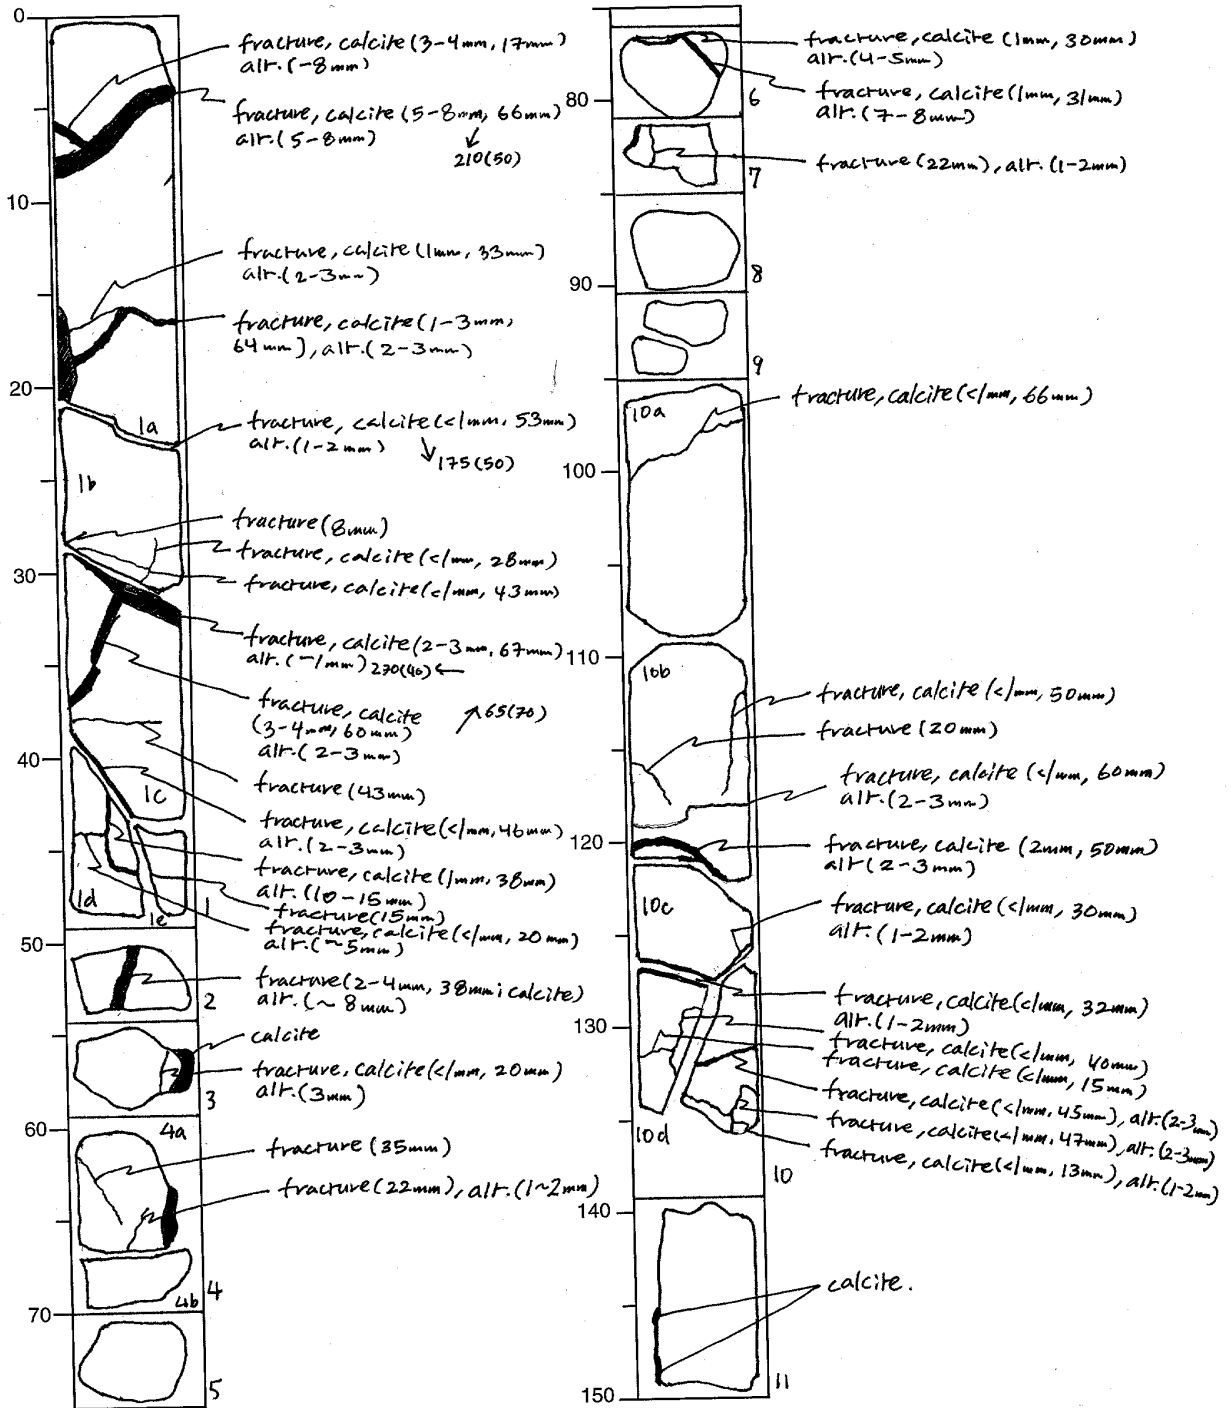 0
fracture, calcite (3-4mm, 17mm)
alt. (~8mm)
fracture, calcite (5-8mm, 66mm)
alt. (5-8mm)
↓
210(50)
10
fracture, calcite (1mm, 33mm)
alt. (2-3mm)
fracture, calcite (1-3mm,
64mm), alt. (2-3mm)
20
1a
fracture, calcite (<1mm, 53mm)
alt. (1-2mm)
↓ 175(50)
1b
fracture (8mm)
fracture, calcite (<1mm, 28mm)
30
fracture, calcite (<1mm, 43mm)
fracture, calcite (2-3mm, 67mm)
alt. (~1mm) 270(40) ←
fracture, calcite
(3-4mm, 60mm)
alt. (2-3mm)
↗ 65(70)
40
fracture (43mm)
1c
fracture, calcite (<1mm, 46mm)
alt. (2-3mm)
fracture, calcite (1mm, 38mm)
alt. (10-15mm)
fracture (15mm)
1d
1e
1
fracture, calcite (<1mm, 20mm)
alt. (~5mm)
50
fracture (2-4mm, 38mm; calcite)
alt. (~8mm)
2
calcite
fracture, calcite (<1mm, 20mm)
alt. (3mm)
3
60
4a
fracture (35mm)
fracture (22mm), alt. (1~2mm)
4b
4
70
5
fracture, calcite (1mm, 30mm)
alt. (4-5mm)
80
fracture, calcite (1mm, 31mm)
alt. (7-8mm)
6
fracture (22mm), alt. (1-2mm)
7
8
90
9
10a
fracture, calcite (<1mm, 66mm)
100
110
10b
fracture, calcite (<1mm, 50mm)
fracture (20mm)
fracture, calcite (<1mm, 60mm)
alt. (2-3mm)
120
fracture, calcite (2mm, 50mm)
alt (2-3mm)
10c
fracture, calcite (<1mm, 30mm)
alt. (1-2mm)
fracture, calcite (<1mm, 32mm)
alt. (1-2mm)
130
fracture, calcite (<1mm, 40mm)
fracture, calcite (<1mm, 15mm)
fracture, calcite (<1mm, 45mm), alt. (2-3mm)
fracture, calcite (<1mm, 47mm), alt. (2-3mm)
fracture, calcite (<1mm, 13mm), alt. (1-2mm)
10d
10
140
calcite.
150
11